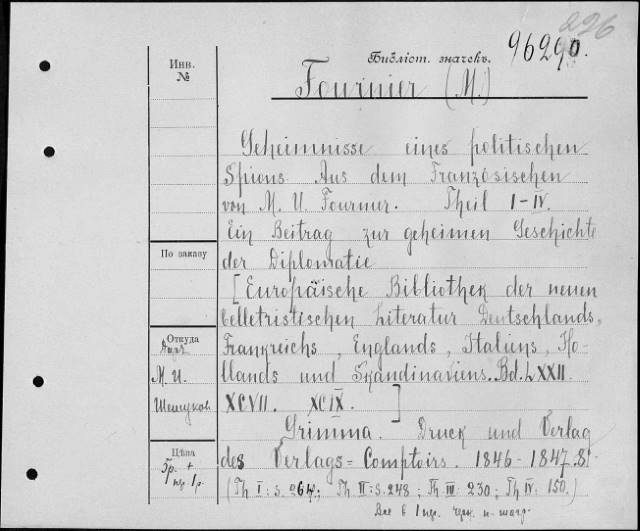 226
Библіот. значекъ. 96290.
Инв.
№
Fournier (M.)
Geheimnisse eines politischen
Spions Aus dem Französischen
von M. U. Fournier. Theil I-IV.
Ein Beitrag zur geheimen Geschichte
der Diplomatie
По заказу
[Europäische Bibliothek der neuen
belletristischen Literatur Deutschlands,
Откуда
Frankreichs, Englands, Italiens, Ho-
М. И.
llands und Skandinaviens. Bd. LXXII.
XCVII. XCIX. ]
Grimma. Druck und Verlag
Цѣна
des Verlags=Comptoirs. 1846-1847. 8°
5р. +
пер. 1р.
(Th I: S. 264; Th II: S. 248; Th III: 230; Th IV: 150.)
Все в 1 пер.